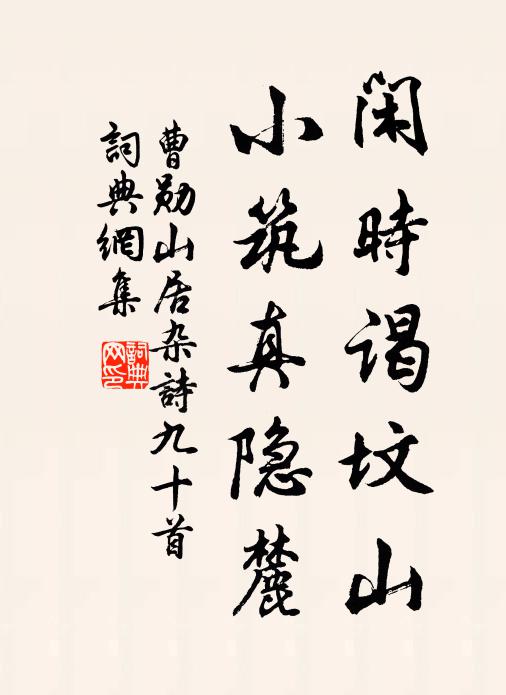 闲時谒坟山
小筑真隐麓
曹勋山居杂詩九十首
詞典網集
詞典網印